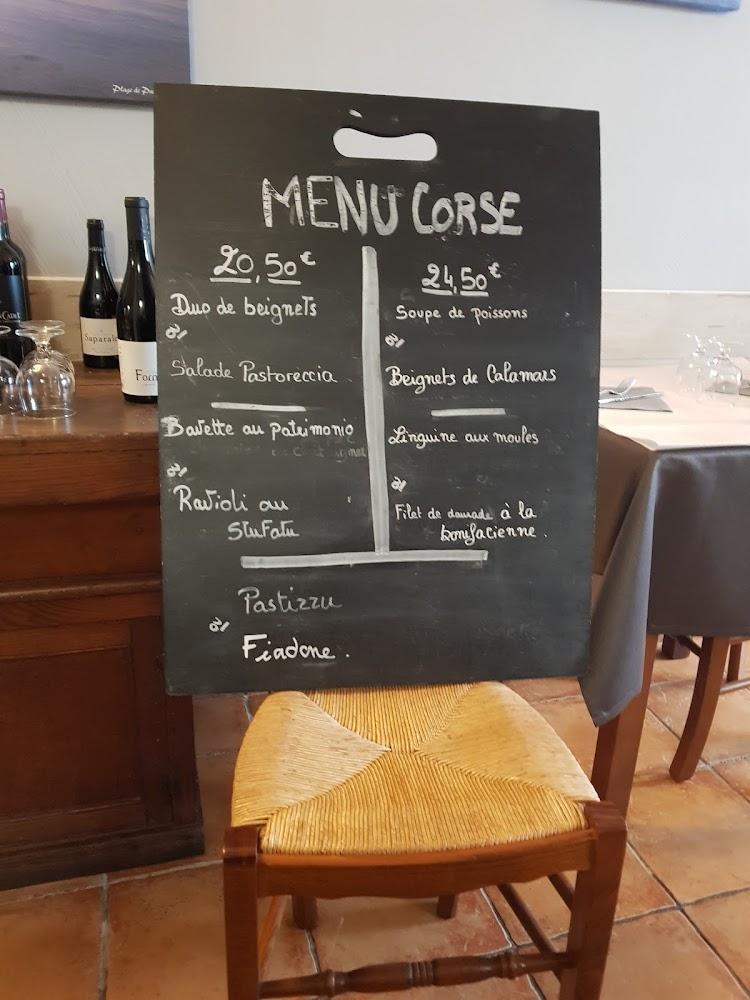 Plage de
MENU CORSE
20,50€
Duo de beignets
ou
Salade Pastoreccia
Bavette au patrimonio
ou
Ravioli au
Stufatu
24,50€
Soupe de poissons
ou
Beignets de Calamars
ou
Linguine aux moules
ou
Filet de daurade à la
bonifacienne.
Pastizzu
ou
Fiadone.
Saparale